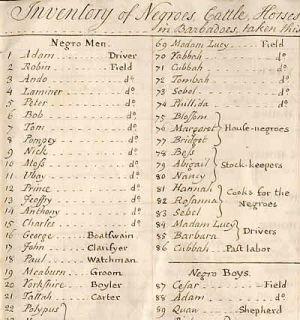 Inventory of Negroes, Cattle, Horses
in Barbadoes, taken this
Negro Men.
1 Adam Driver
2 Robin Field
3 Ando do
4 Laminer do
5 Peter do
6 Bob do
7 Tom do
8 Pompey do
9 Nick do
10 Moss do
11 Ubay do
12 Prince do
13 Jeoffry do
14 Anthony do
15 Charles do
16 George Boatswain
17 John Clarifyer
18 Paul Watchman
19 Meaburn Groom
20 Yorkshire Boyler
21 Tallah Carter
22 Polypus
69 Madam Lucy Field
70 Yabbah do
71 Cubbah do
72 Tombah do
73 Sebel do
74 Phillida do
75 Blossom
76 Margaret House-negroes
77 Bridget
78 Bess
79 Abigail Stock-keepers
80 Nancy
81 Hannah
82 Rosanna Cooks for the Negroes
83 Sebel
84 Madam Lucy
85 Barbara Drivers
86 Cubbah Past labor
Negro Boys.
87 Cesar Field
88 Adam do
89 Quan Shepherd